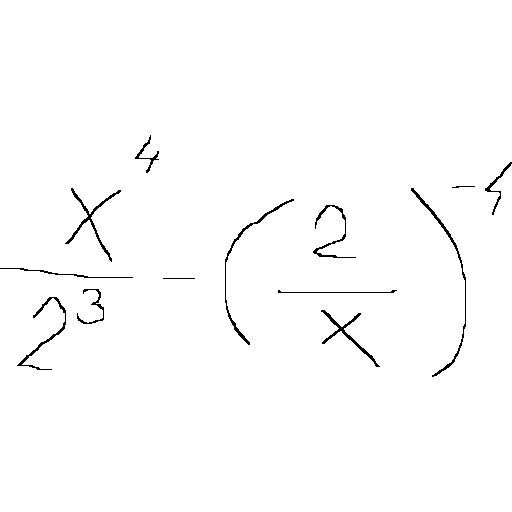 \frac{x^4}{2^3} - \left(\frac{2}{x}\right)^{-4}